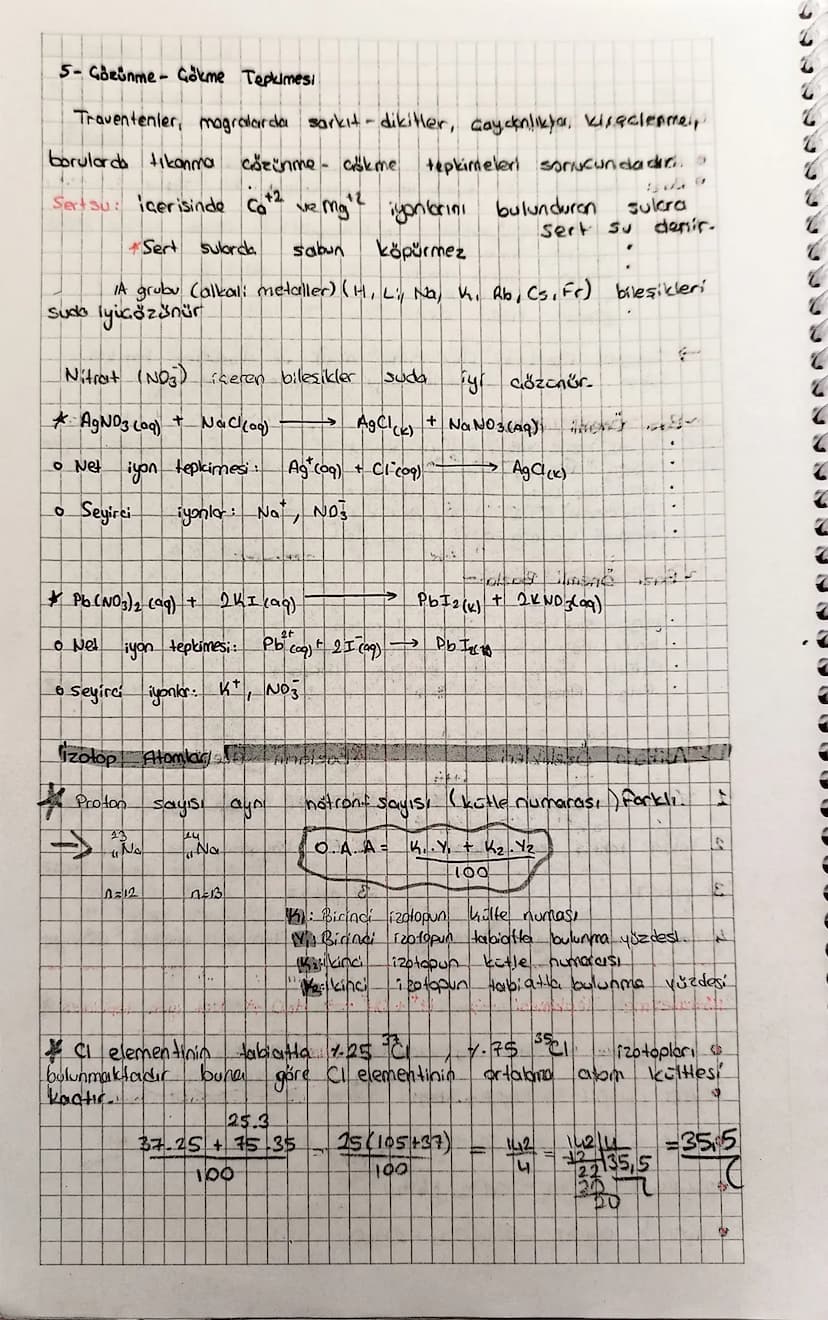 5- Çözünme - Çökme Tepkimesi
Traventenler, mağralarda sarkıt - dikitler, çaydanlıkta, kireçlenme,
borularda tıkanma çözünme - çökme tepkimeleri sonucundadır.
Sert su: içerisinde Ca⁺² ve Mg⁺² iyonlarını bulunduran sulara
sert su denir.
*Sert sularda sabun köpürmez
1A grubu (alkali metaller) (H, Li, Na, K, Rb, Cs, Fr) bileşikleri
suda iyi çözünür
Nitrat (NO₃⁻) içeren bileşikler suda iyi çözünür.
* AgNO₃(aq) + NaCl(aq) → AgCl(k) + NaNO₃(aq)
o Net iyon tepkimesi: Ag⁺(aq) + Cl⁻(aq) → AgCl(k)
o Seyirci iyonlar: Na⁺, NO₃⁻
* Pb(NO₃)₂(aq) + 2KI(aq) → PbI₂(k) + 2KNO₃(aq)
o Net iyon tepkimesi: Pb²⁺(aq) + 2I⁻(aq) → PbI₂(k)
o Seyirci iyonlar: K⁺, NO₃⁻
İzotop Atomlar
* Proton sayısı aynı nötron sayısı (kütle numarası) farklı.
→ ²³₁₁Na ²⁴₁₁Na O.A.A = K₁.Y₁ + K₂.Y₂ / 100
n=12 n=13
K₁: Birinci izotopun külte numası
Y₁: Birinci izotopun tabiatta bulunma yüzdesi.
K₂: İkinci izotopun kütle numarası
Y₂: İkinci izotopun tabiatta bulunma yüzdesi
* Cl elementinin tabiatta %25 ³⁷Cl, %75 ³⁵Cl izotopları
bulunmaktadır buna göre Cl elementinin ortalama atom kültlesi
kaçtır.
25.3
37.25 + 75.35 / 100 = 25(105+37) / 100 = 142/4 = 142|4 = 35,5
12 35,5
22
20
20